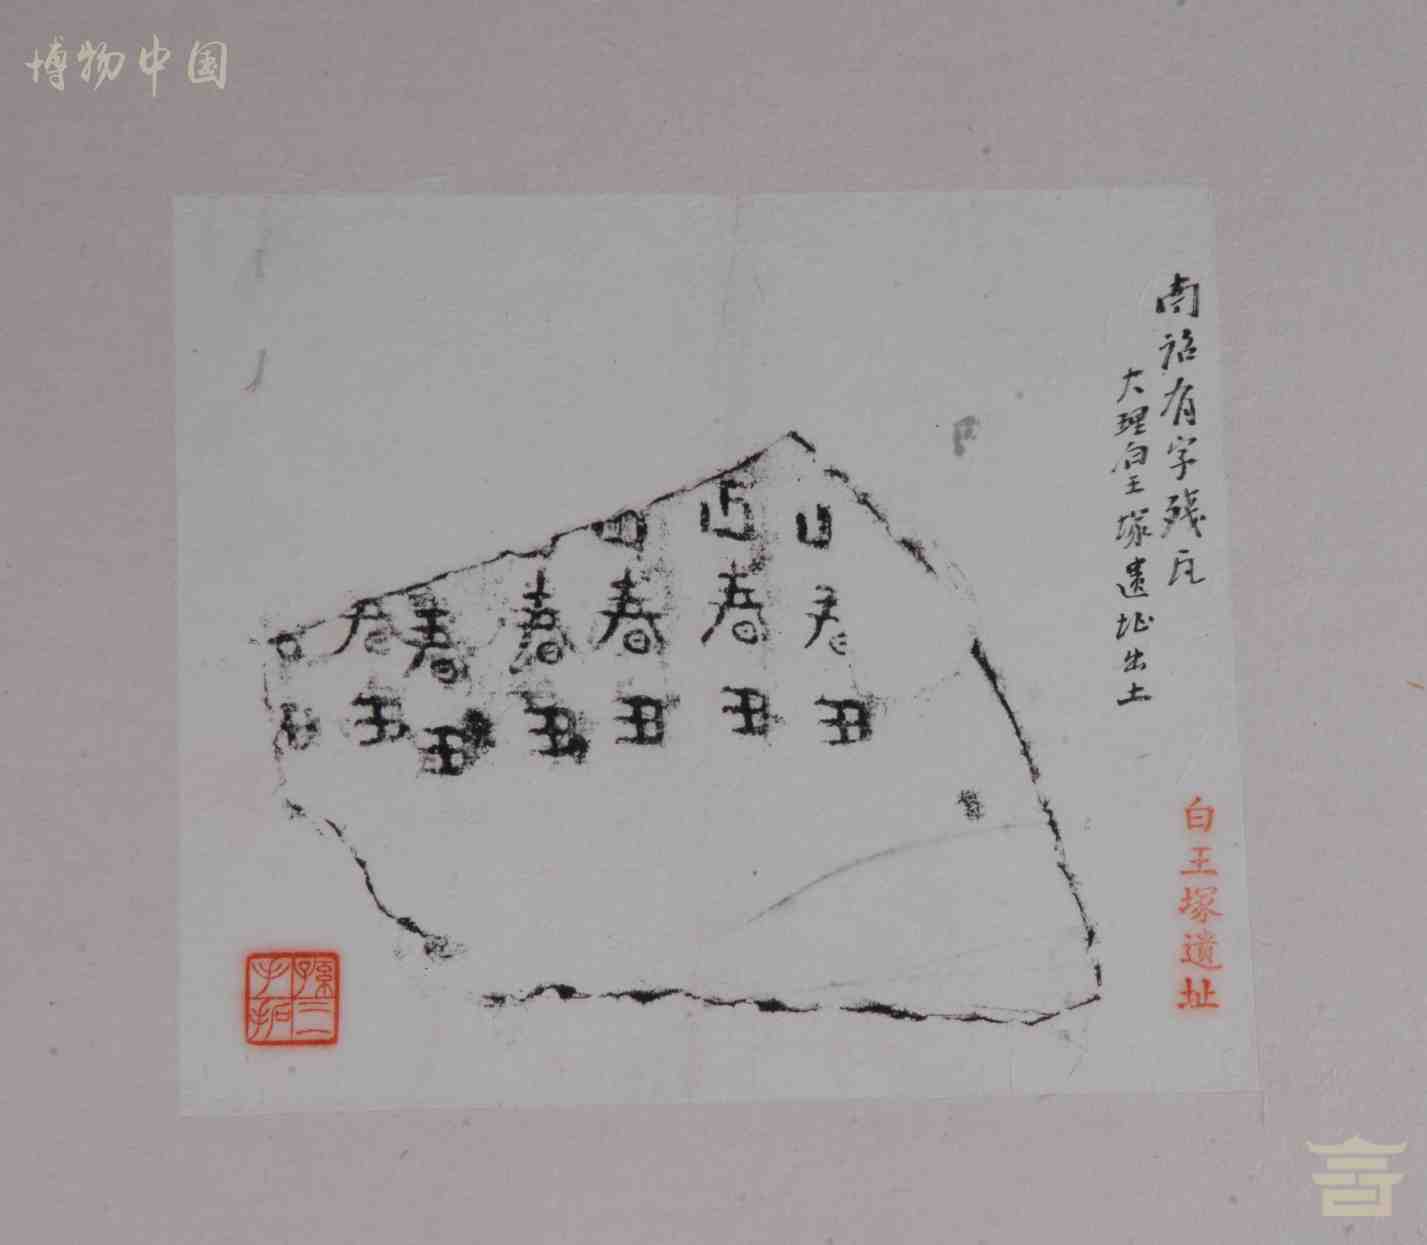 博物中国
南詔有字殘瓦
大理白王塚遺址出土
春春春春春
丑丑丑丑丑丑丑
白王塚遺址